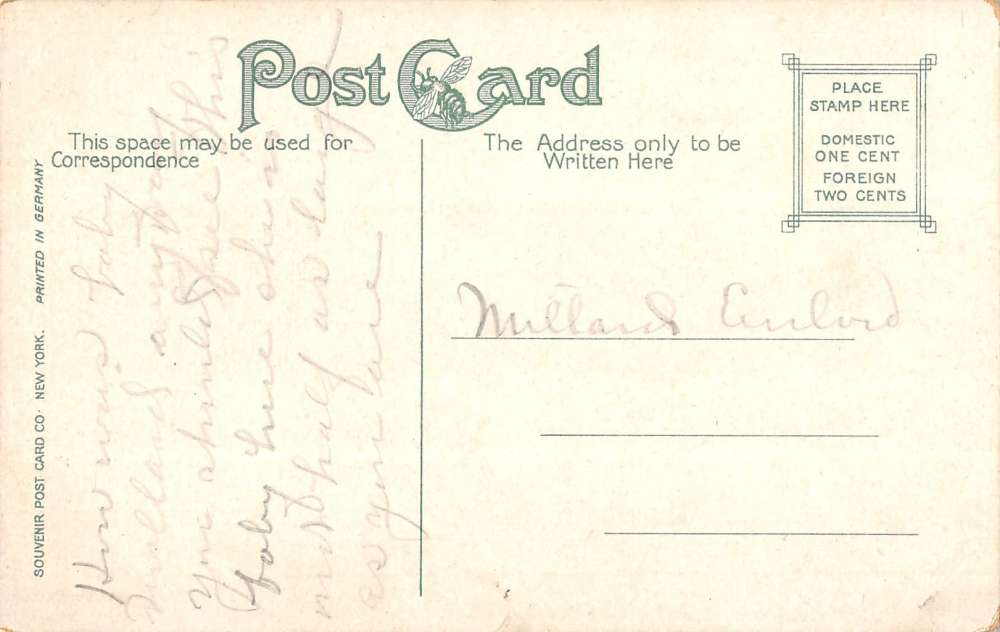 Post Card
This space may be used for
Correspondence
The Address only to be
Written Here
PLACE
STAMP HERE
DOMESTIC
ONE CENT
FOREIGN
TWO CENTS
SOUVENIR POST CARD CO. NEW YORK. PRINTED IN GERMANY
How was baby
Millard
You should see this
baby here she is
not half as large
as you are
Millard